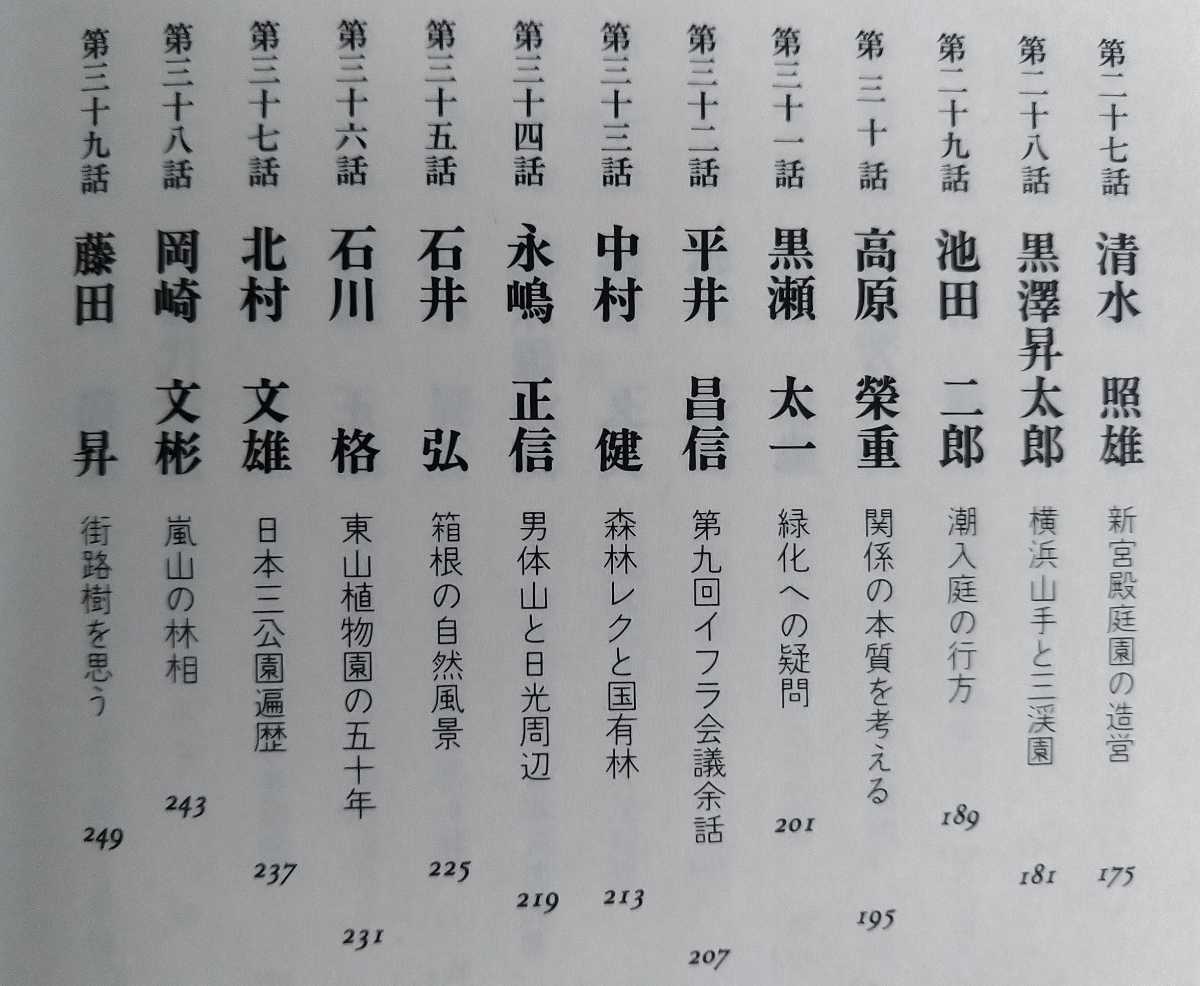 第二十七話 清水 照雄 新宮殿庭園の造営 175
第二十八話 黒澤昇太郎 横浜山手と三渓園 181
第二十九話 池田 二郎 潮入庭の行方 189
第三十話 高原 榮重 関係の本質を考える 195
第三十一話 黒瀬 太一 緑化への疑問 201
第三十二話 平井 昌信 第九回イフラ会議余話 207
第三十三話 中村 健 森林レクと国有林 213
第三十四話 永嶋 正信 男体山と日光周辺 219
第三十五話 石井 弘 箱根の自然風景 225
第三十六話 石川 格 東山植物園の五十年 231
第三十七話 北村 文雄 日本三公園遍歴 237
第三十八話 岡崎 文彬 嵐山の林相 243
第三十九話 藤田 昇 街路樹を思う 249